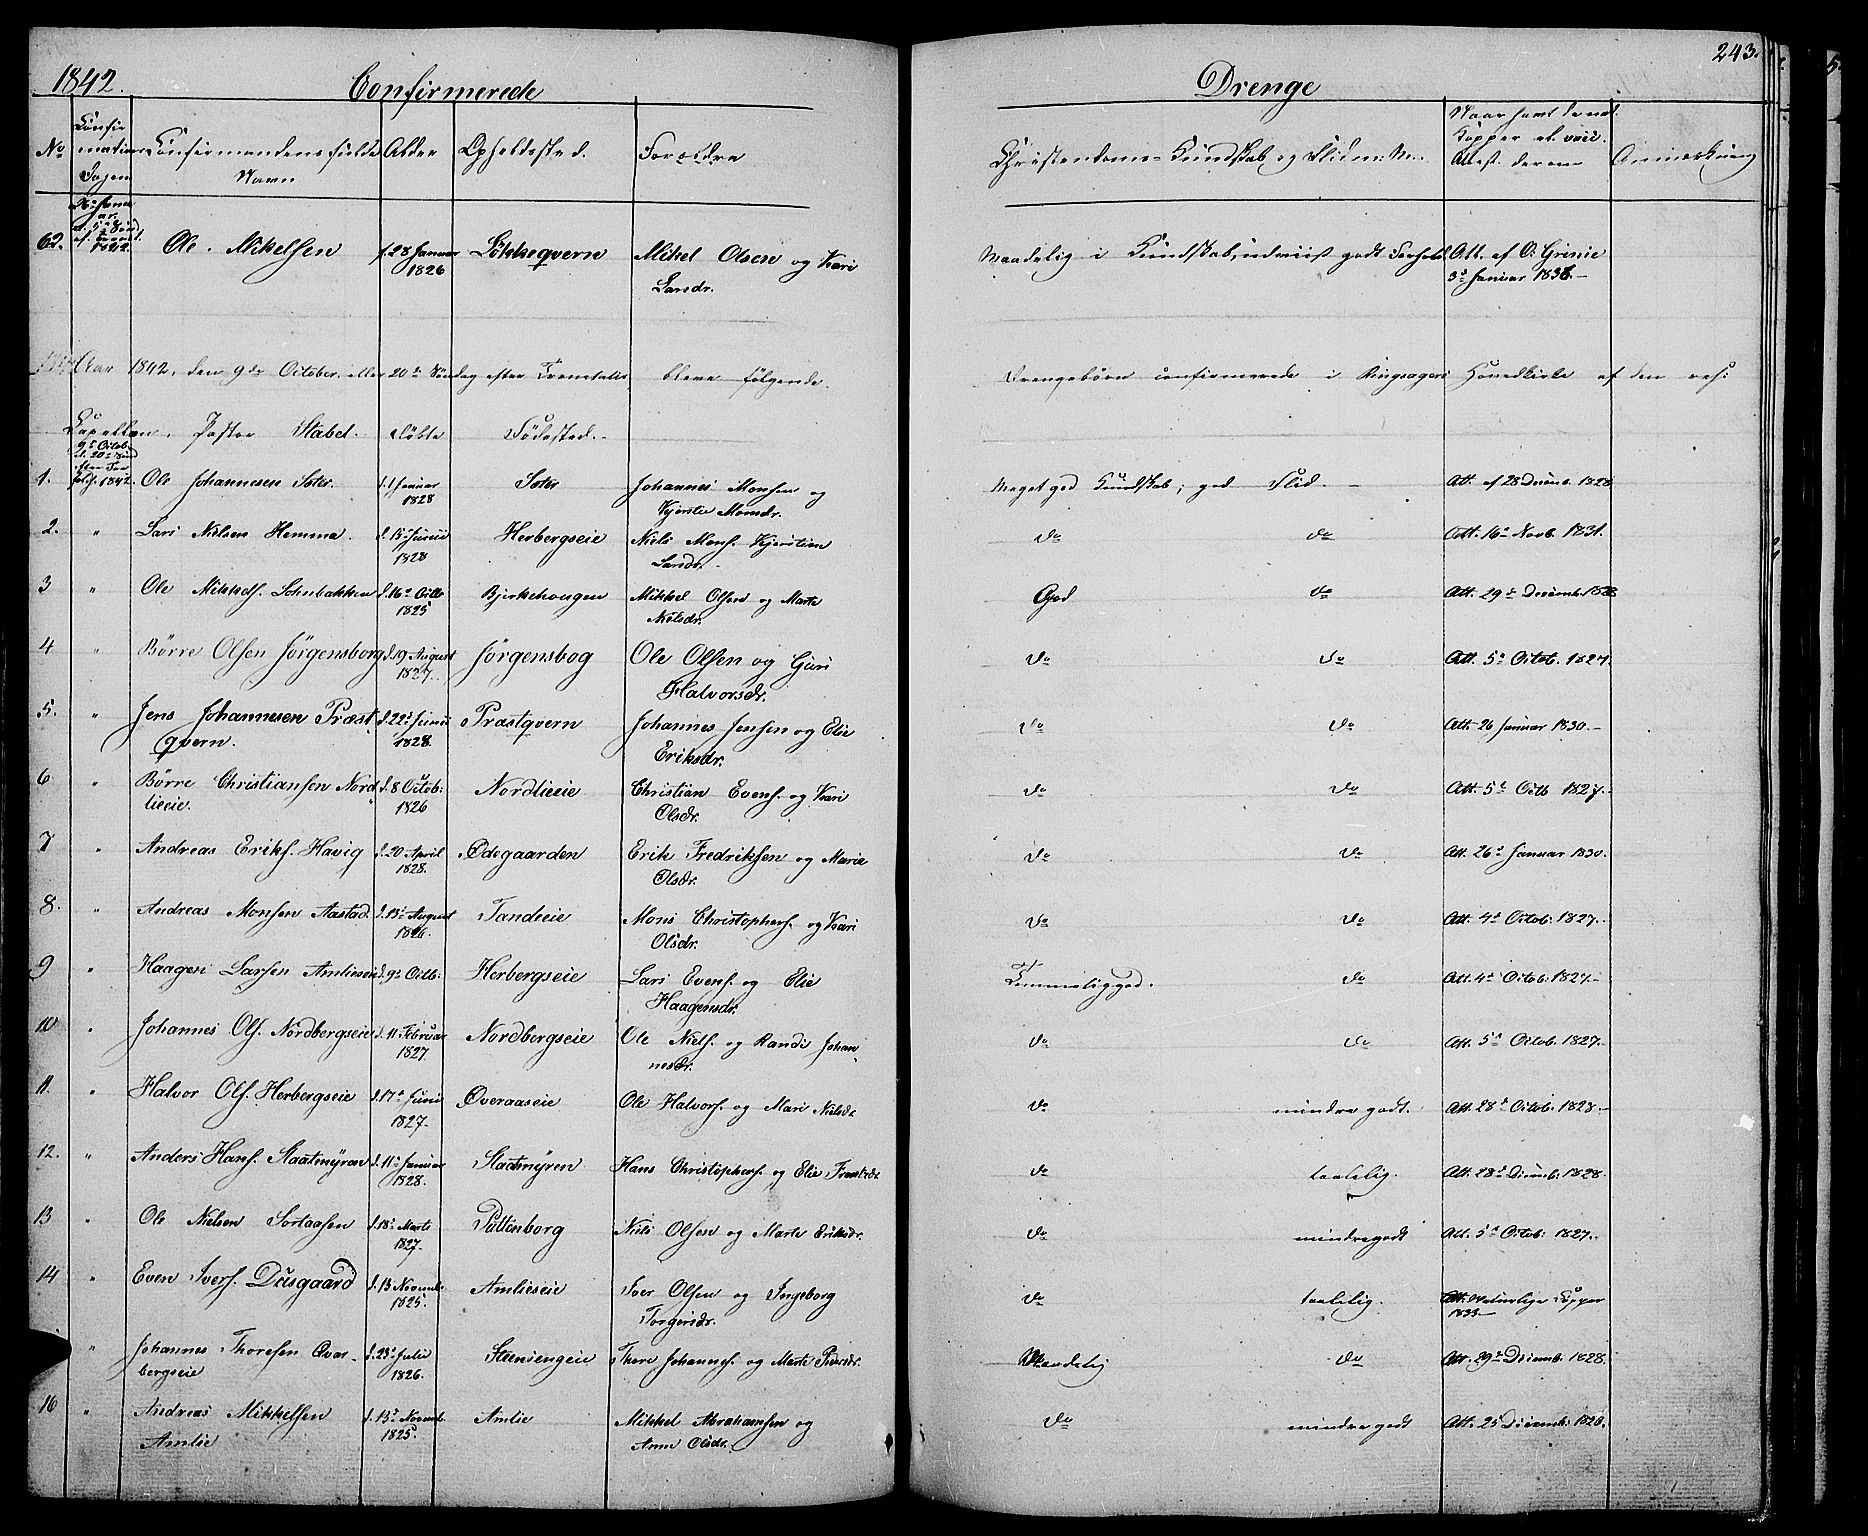 1842. Confirmerede Drenge 243.
No Confirmations Dagen Confirmandens fulde Navn Alder Opholdssted. Forældre Christendoms-Kundskab og Flid m: M. Naar samt de nat. Kopper el. vacc. Attest. derom Anmærkning
62. 1842. Ole Mikelsen f. 28 Januar 1826 Løkkeqvern Mikel Olsen og Kari Larsdr. Maadelig i Kundskab, udviist godt Forhold Att. af O: Grinie 3d Januar 1838.-
Aar 1842, den 9de October, eller 20de Søndag efter Trinitatis bleve følgende Drengebørn confirmerede i Ringsagers Hovedkirke af den res:
Capellan, Pastor Stabel. døbte Fødested.-
1. 9de Octob. el. 20de Sønd. efter Tri 1842. Ole Johannesen Sater. d. 1 Januar 1828 Sater Johannes Monsen og Kjerstie Monsdr. Meget god Kundskab; god Flid. - Att. af 28 Decemb. 1828
2. " Lars Nielsen Hemma. d. 15de Junii 1828 Herbergseie Niels Mons. Kjerstien Larsdr. - do do Att. 16de Novb. 1831.
3 " Ole Mikkels. Lohnbakken d. 16de Octb 1825 Bjerkehougen Mikkel Olsen og Marte Nielsdr. God do Att. 29de Decemb. 1828
4 " Børre Olsen Jørgensborg d. 19 August 1827. Jørgensbog Ole Olsen og Guri Halvorsdr. do do Att. 5d Octob. 1827.
5. " Jens Johannesen Præst qvern. d. 22d Junii 1828. Præstqvern Johannes Jensen og Elie Eriksdr. do do Att. 26 Januar 1830.-
6 " Børre Christiansen Nord lieeie. d. 8 Octob: 1826 Nordlieeie Christian Evens. og Kari Olsdr. do do Att. 5d Octb 1827.-
7 " Andreas Eriks. Havig d. 20 April 1828. Ødegaarden Erik Fredriksen og Marie Olsdr. do do Att. 26d Januar 1830.
8. " Andreas Monsen Aastad. d. 13d August 1826. Tandeeie Mons Christophers. og Kari Olsdr. do do Att. 4d Octob: 1827.-
9 " Haagen Larsen Amlieseie d. 9de Octb: Herbergseie Lars Evens. og Elie Haagensdr. Temmelig god. do Att. 4d Octob: 1827.-
10 " Johannes Ols. Nordbergseie d. 11 Februar 1827. Nordbergseie Ole Niels. og Randi Johan nesdr. do do Att. 5d Octob. 1827.-
11. " Halvor Ols. Herbergseie d. 17de Junii 1827- Overaaseie Ole Halvors. og Mari Nielsdr do mindre godt. Att. 28d Octob. 1828.-
12. " Anders Hans. Staatmyren d. 11de Januar 1828. Staatmyren Hans Christophers. og Elie do taalelig. Att. 28d Decemb. 1828.
13 " Ole Nielsen Sortaasen d. 18d Marts 1827- Puttenborg Niels Olsen og Marte Eriksdr. do mindre godt Att. 5d Octob: 1827.-
14 " Even Ivers. Dusgaard d. 13 Novemb. 1825. Amlieseie Iver Olsen og Ingeborg Torgersdr. do taalelig. Att. naturlige Kopper 1833
" Johannes Thoresen Qvar- bergseie d. 23d Julii 1826. Steensengeie Thore Johannes. og Marte Pedersdr. Maadelig do Att. 29de Decemb. 1828.
16 " Andreas Mikkelsen Amlie d. 13d Novemb. 1825. Amlie Mikkel Abrahamsen og Anne Olsdr. do mindre godt Att. 25 Decemb. 1828.